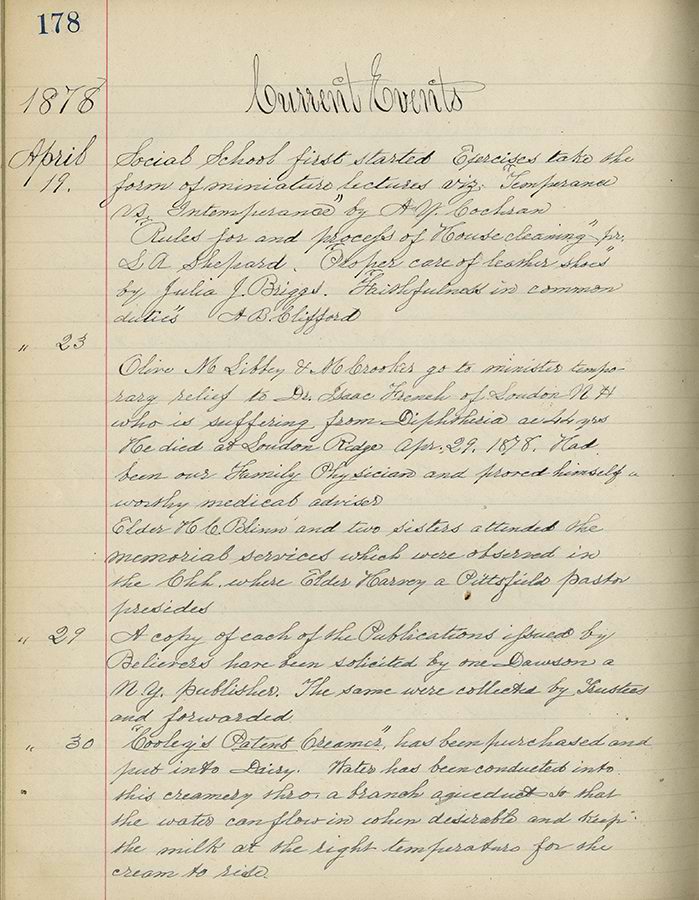 178
1878 Current Events
April 19. Social School first started Exercises take the
form of miniature lectures viz; "Temperance
vs, Intemperance" by A. Y. Cochran
"Rules for and process of Housecleaning" pr.
L. A. Shepard. "Proper care of leather shoes"
by Julia J. Briggs. "Faithfulness in common
duties" A. B. Clifford
" 23
Olive M Libbey & M Crooker go to minister tempo-
rary relief to Dr. Isaac French of Loudon N H
who is suffering from Diphtheria ae 44 yrs
He died at Loudon Ridge Apr. 29. 1878. Had
been our Family Physician and proved himself a
worthy medical adviser
Elder H. C. Blinn and two sisters attended the
memorial services which were observed in
the Chh. where Elder Harvey a Pittsfield pastor
presides
" 29 A copy of each of the Publications issued by
Believers have been solicited by one Dawson a
N.Y. publisher. The same were collected by Trustees
and forwarded
" 30 "Cooley's Patent Creamer", has been purchased and
put into Dairy. Water has been conducted into
this creamery thro. a branch aqueduct so that
the water can flow in when desirable and keep
the milk at the right temperature for the
cream to rise.